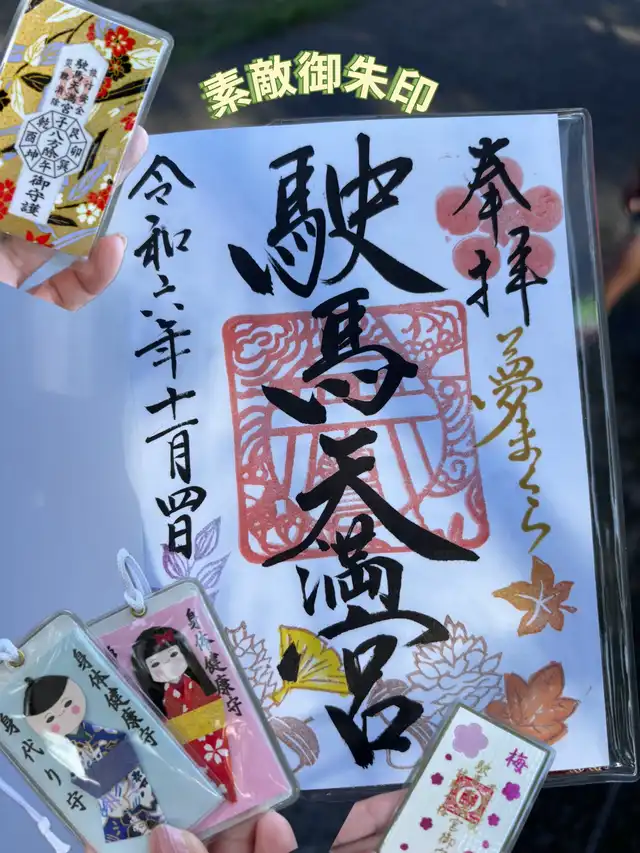 素敵御朱印
奉拝
夢まくら
駛馬天満宮
令和六年十一月四日
御守護
身体健康守
身代り守
身体健康守
梅